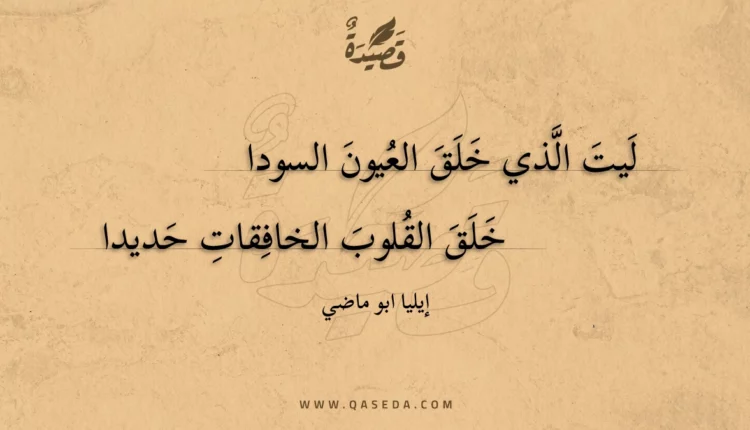 قَصِيْدَةٌ
لَيتَ الَّذي خَلَقَ العُيونَ السودا
خَلَقَ القُلوبَ الخافِقاتِ حَديدا
إيليا ابو ماضي
WWW.QASEDA.COM